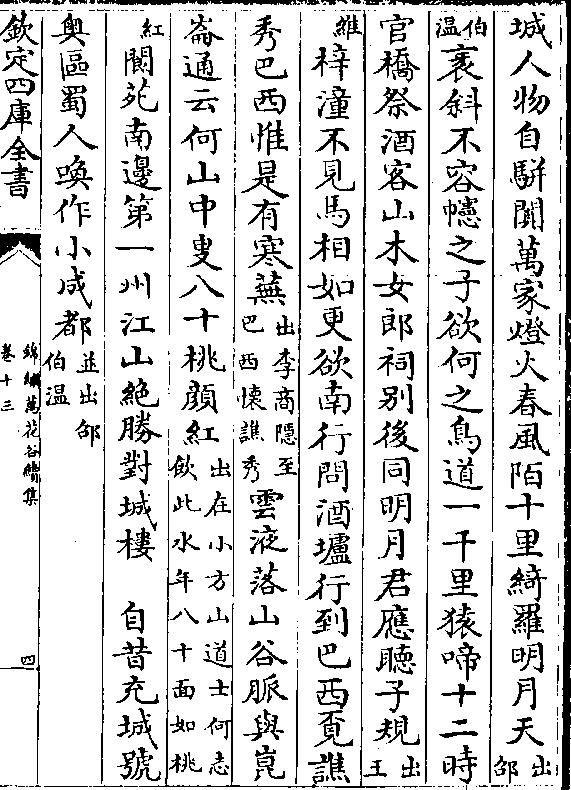 城人物自駢闐萬家燈火春風陌十里綺羅明月天出邵
伯温褒斜不容幰之子欲何之鳥道一千里猿啼十二時
官橋祭酒客山木女郎祠别後同明月君應聽子規出王
維梓潼不見馬相如更欲南行問酒壚行到巴西覔譙
秀巴西惟是有寒蕪出李商隱至巴西懷譙秀雲液落山谷脈與崑
崙通云何山中叟八十桃顔紅出在小方山道士何志欽此水年八十面如桃
紅閬苑南邊第一州江山絶勝對城樓 自昔充城號
奥區蜀人喚作小成都並出邵伯温
欽定四庫全書
錦繡萬花谷續集
卷十三
四